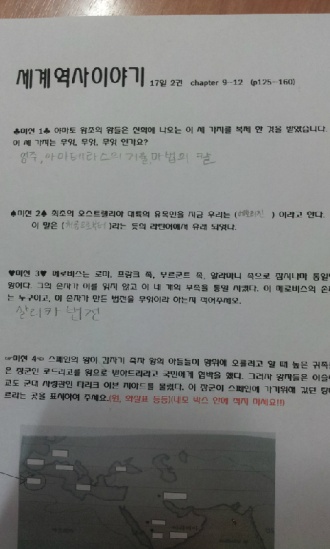 세계역사이야기 17일 2권 chapter 9-12 (p125-160)
♣미션 1♣ 야마토 왕조의 왕들은 신화에 나오는 이 세 가지를 복제 한 것을 받았습니다.
이 세 가지는 무엇, 무엇, 무엇 인가요?
♠미션 2♠ 최초의 오스트렐리아 대륙의 유목인을 지금 우리는 ( ) 이라고 한다.
이 말은 ( )라는 뜻의 라틴어에서 유래 되었다.
♥미션 3♥ 메로비스는 로마, 프랑크 족, 부르군트 족, 알라마니 족으로
왕이다. 그의 손자가 이를 잊지 않고 이 네 개의 부족을 통일 시켰다. 이 메로비스의 손
는 누구이고, 이 손자가 만든 법전을 무엇이라 하는지 적어주세요.
살리카 법전
미션 4 스페인의 왕이 갑자기 죽자 왕의 아들들이 왕위에 오르려고 할 때 높은 귀족
은 장군인 로드리고를 왕으로 받아드리라고 국민에게 협박을 했다. 그러자 왕자들은 이슬
교도 군대 사령관인 타리크 이븐 지야드를 불렀다. 이 장군이 스페인에 가기위해 갔던
르라는 곳을 표시하여 주세요.(원, 화살표 등등)(네모 박스 안에 적지 마세요!!)